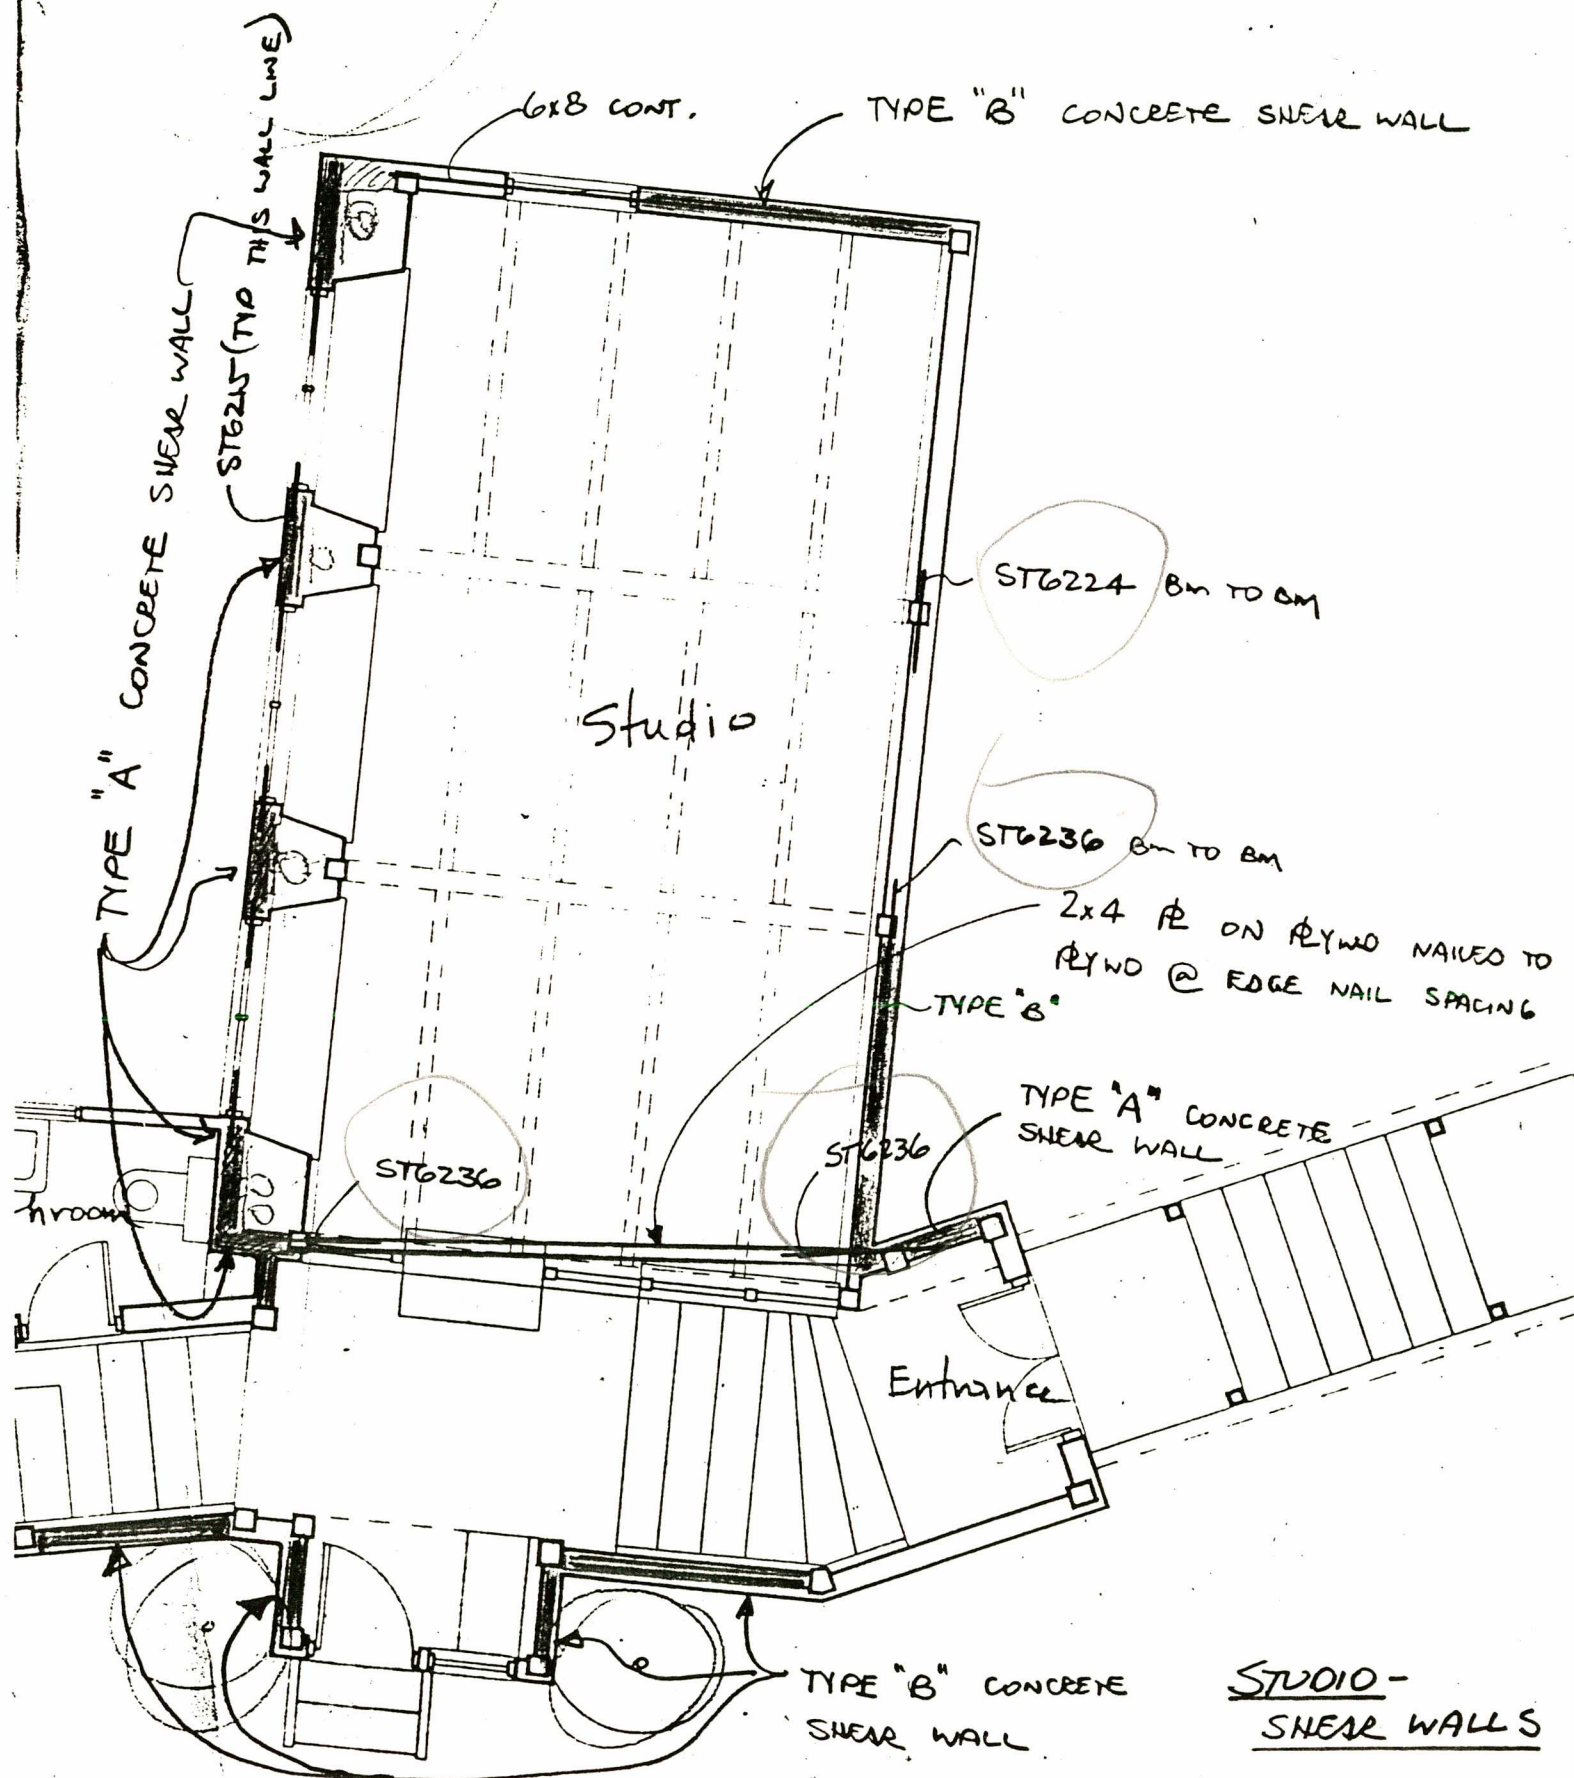 6x8 CONT.
TYPE "B" CONCRETE SHEAR WALL
TYPE "A" CONCRETE SHEAR WALL
ST6215 (TYP THIS WALL LINE)
ST6224 BM TO BM
Studio
ST6236 BM TO BM
2x4 PL ON PLYWD NAILED TO
PLYWD @ EDGE NAIL SPACING
TYPE "B"
TYPE "A" CONCRETE
SHEAR WALL
ST6236
ST6236
hroom
Entrance
TYPE "B" CONCRETE
SHEAR WALL
STUDIO -
SHEAR WALLS